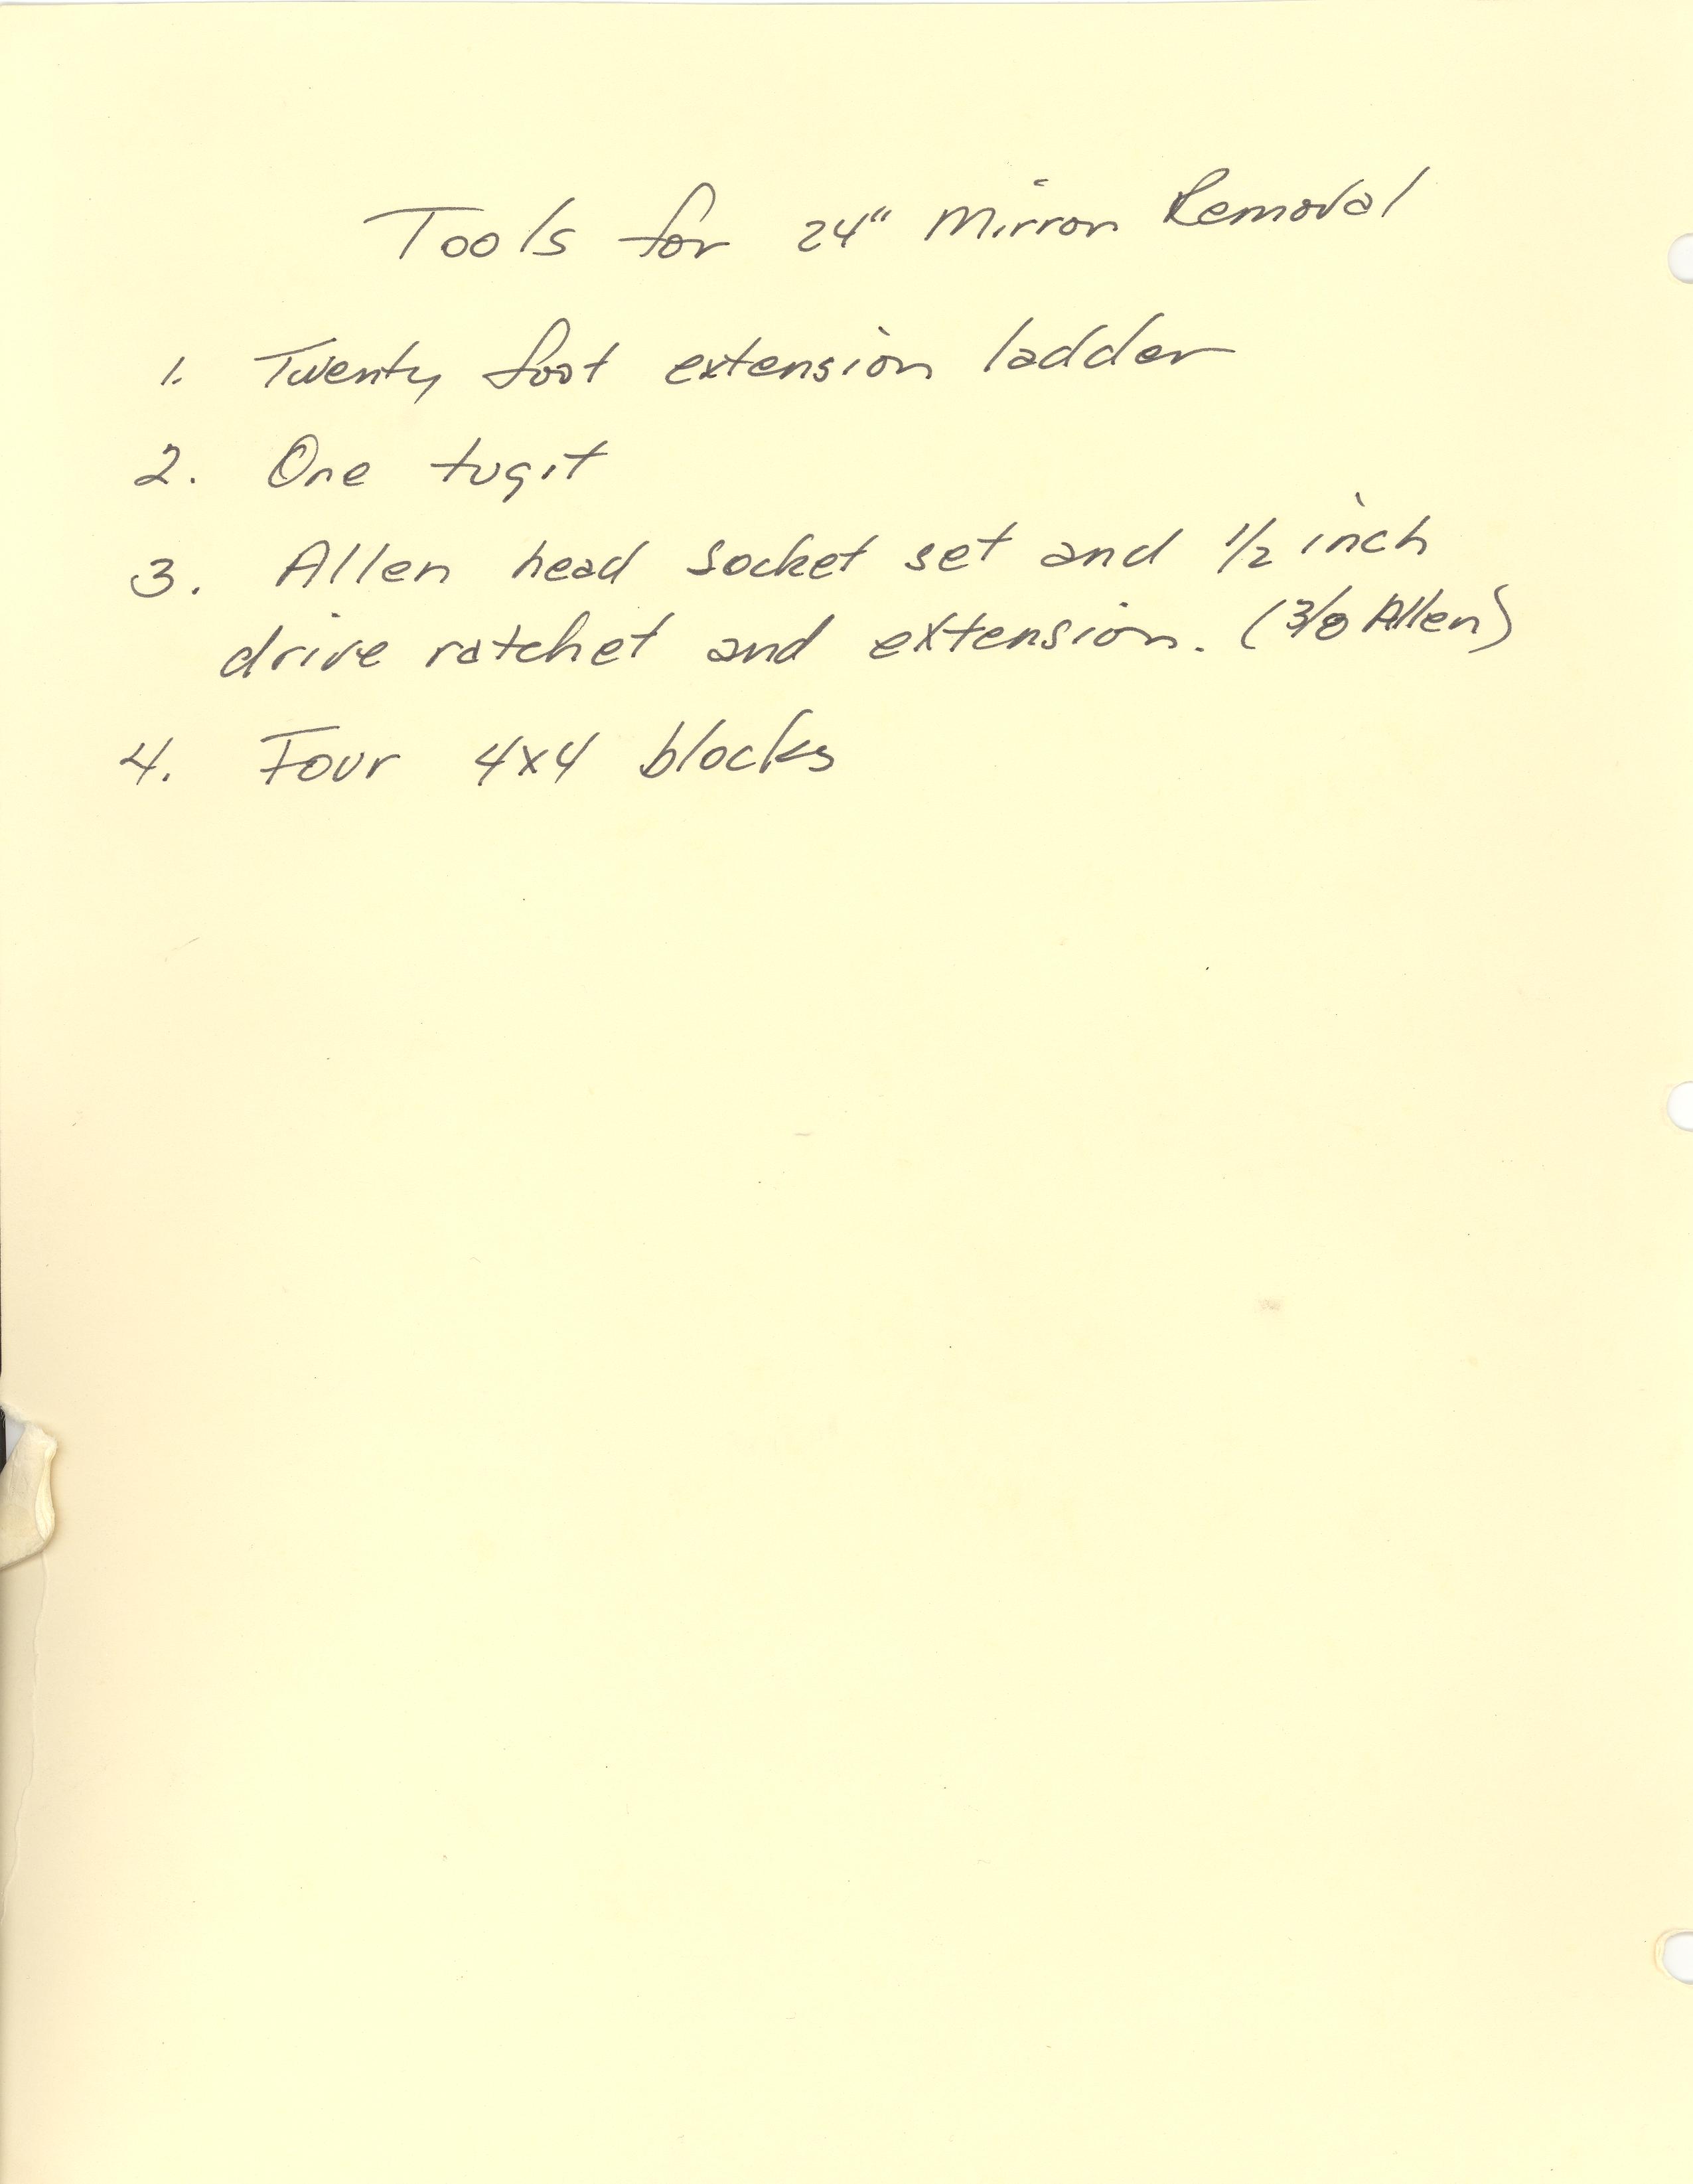 Tools for 24" Mirror Removal
1. Twenty foot extension ladder
2. One tugit
3. Allen head socket set and 1/2 inch
drive ratchet and extension. (3/8 Allen)
4. Four 4x4 blocks